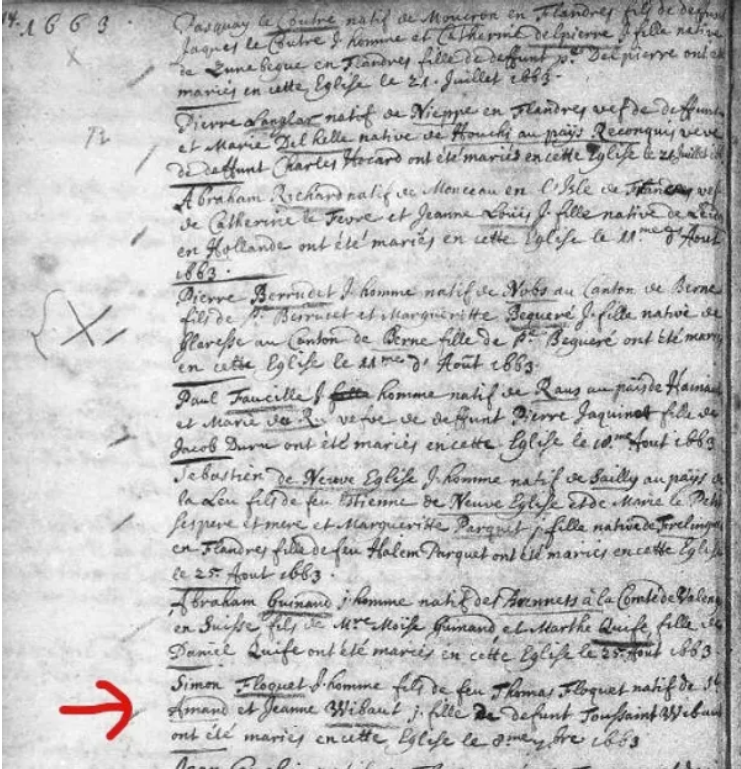 1663.
Pasquay le Coutre natif de Moucron en Flandres fils de defunt
Jaques le Coutre J. homme et Catherine delpierre J. fille native
de Zunebeque en Flandres fille de deffunt Delpierre ont été
mariés en cette Eglise le 21. Juillet 1663.
Pierre Langlar natif de Nieppe en Flandres vef de deffunte
et Marie Del helle native de Houchi au païs Reconquis veve
de deffunt Charles Hocard ont été mariés en cette Eglise le 21 Juillet
Abraham Richard natif de Monceau en l'Isle de vef
de Catherine le Fevre et Jeanne Loüis J. fille native de
en Hollande ont été mariés en cette Eglise le 11.me d'Aout
1663.
Pierre Berrudet J. homme natif de Nods au Canton de Berne
fils de P. Berrudet et Margueritte Begueré J. fille native de
Glaresse au Canton de Berne fille de P.re Begueré ont été mariés
en cette Eglise le 11.me d'Août 1663.
Paul Faucille J. homme natif de au païs de Hainau
et Marie vefve de deffunt Pierre Jaquinot fille de
Jacob Duru ont été mariés en cette Eglise le 18.me Aout 1663
Sebastien de Neuve Eglise J. homme natif de Sailly au païs de
la Leu fils de feu Etienne de Neuve Eglise et de Marie le
ses pere et mere et Margueritte Parquet j. fille native de Frelingue
en Flandres fille de feu Halem Parquet ont été mariés en cette Eglise
le 25. Aout 1663.
Abraham Guinand j. homme natif des Brennets à la Comté de Valeng
en Suisse fils de M.re Moïse Guinand et Marthe Quife, fille de
Daniel Quife ont été mariés en cette Eglise le 25. Aout 1663.
Simon Floquet J. homme fils de feu Thomas Floquet natif de St
Amand et Jeanne Wibaut j. fille de defunt Toussaint Wibaut
ont été mariés en cette Eglise le 8.me 1663